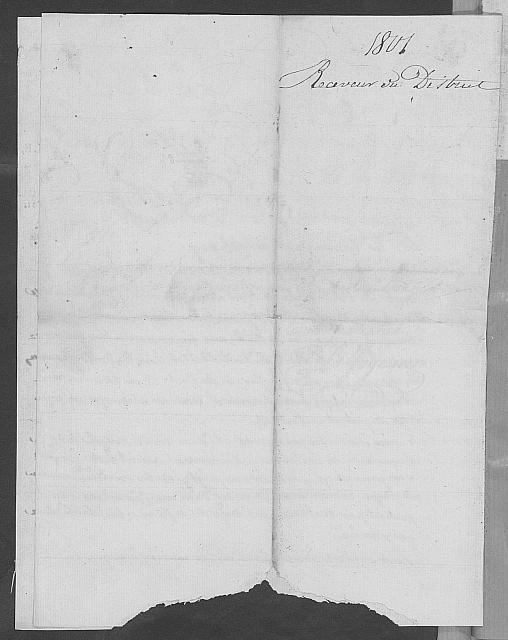 1801
Receveur du District